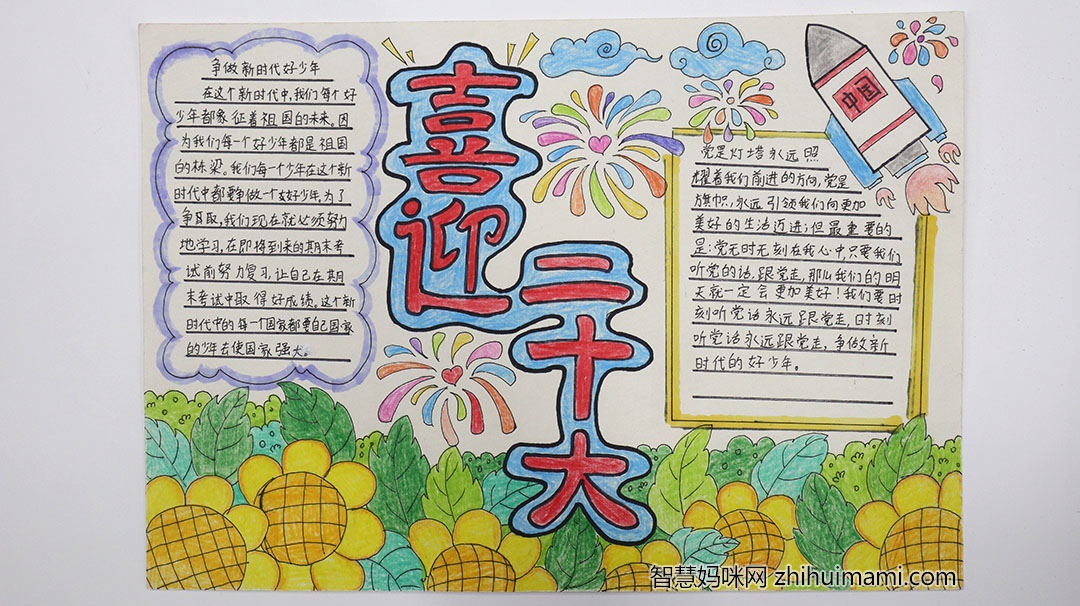 争做新时代好少年
在这个新时代中,我们每个好
少年都象征着祖国的未来。因
为我们每一个好少年都是祖国
的栋梁。我们每一个少年在这个新
时代中都要争做一个好少年,为了
争取,我们现在就必须努力
地学习,在即将到来的期末考
试前努力复习,让自己在期
末考试中取得好成绩。这个新
时代中的每一个国家都要自己国家
的少年去使国家强大。
喜迎
二十大
中国
党是灯塔永远照
耀着我们前进的方向,党是
旗帜,永远引领我们向更加
美好的生活迈进;但最重要的
是:党无时无刻在我心中,只要我们
听党的话,跟党走,那么我们的明
天就一定会更加美好!我们要时
刻听党话永远跟党走,时刻
听党话永远跟党走,争做新
时代的好少年。
智慧妈咪网 zhihuimami.com